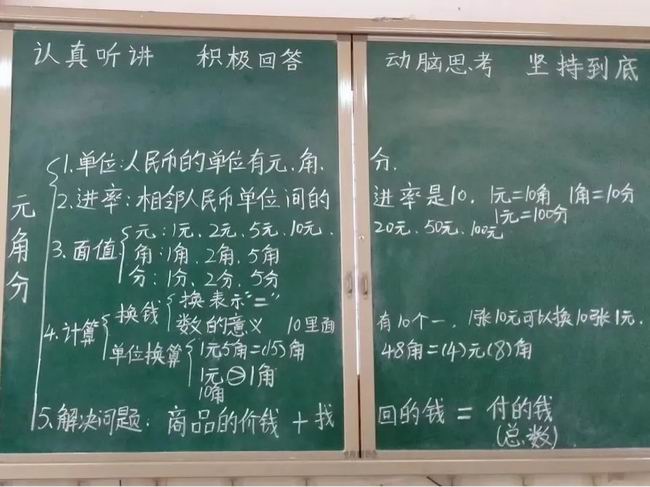 认真听讲 积极回答 动脑思考 坚持到底
元角分
1.单位:人民币的单位有元、角、分.
2.进率:相邻人民币单位间的进率是10. 1元=10角 1角=10分
1元=100分
3.面值 元:1元、2元、5元、10元、20元、50元、100元
角:1角、2角、5角
分:1分、2分、5分
4.计算 换钱 换 表示“=”
数的意义 10里面有10个一, 1张10元可以换10张1元.
单位换算 1元5角=(15)角 48角=(4)元(8)角
1元>1角
10角
5.解决问题: 商品的价钱+找回的钱=付的钱
(总数)